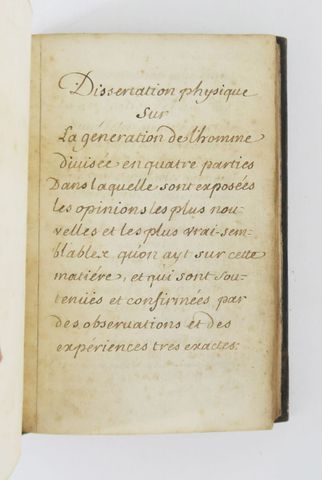 Dissertation physique
sur
La génération de l'homme
divisée en quatre parties
Dans laquelle sont exposées
les opinions les plus nou-
velles et les plus vrai-sem-
blables qu'on ayt sur cette
matiére, et qui sont sou-
tenuës et confirmées par
des observations et des
expériences tres exactes.